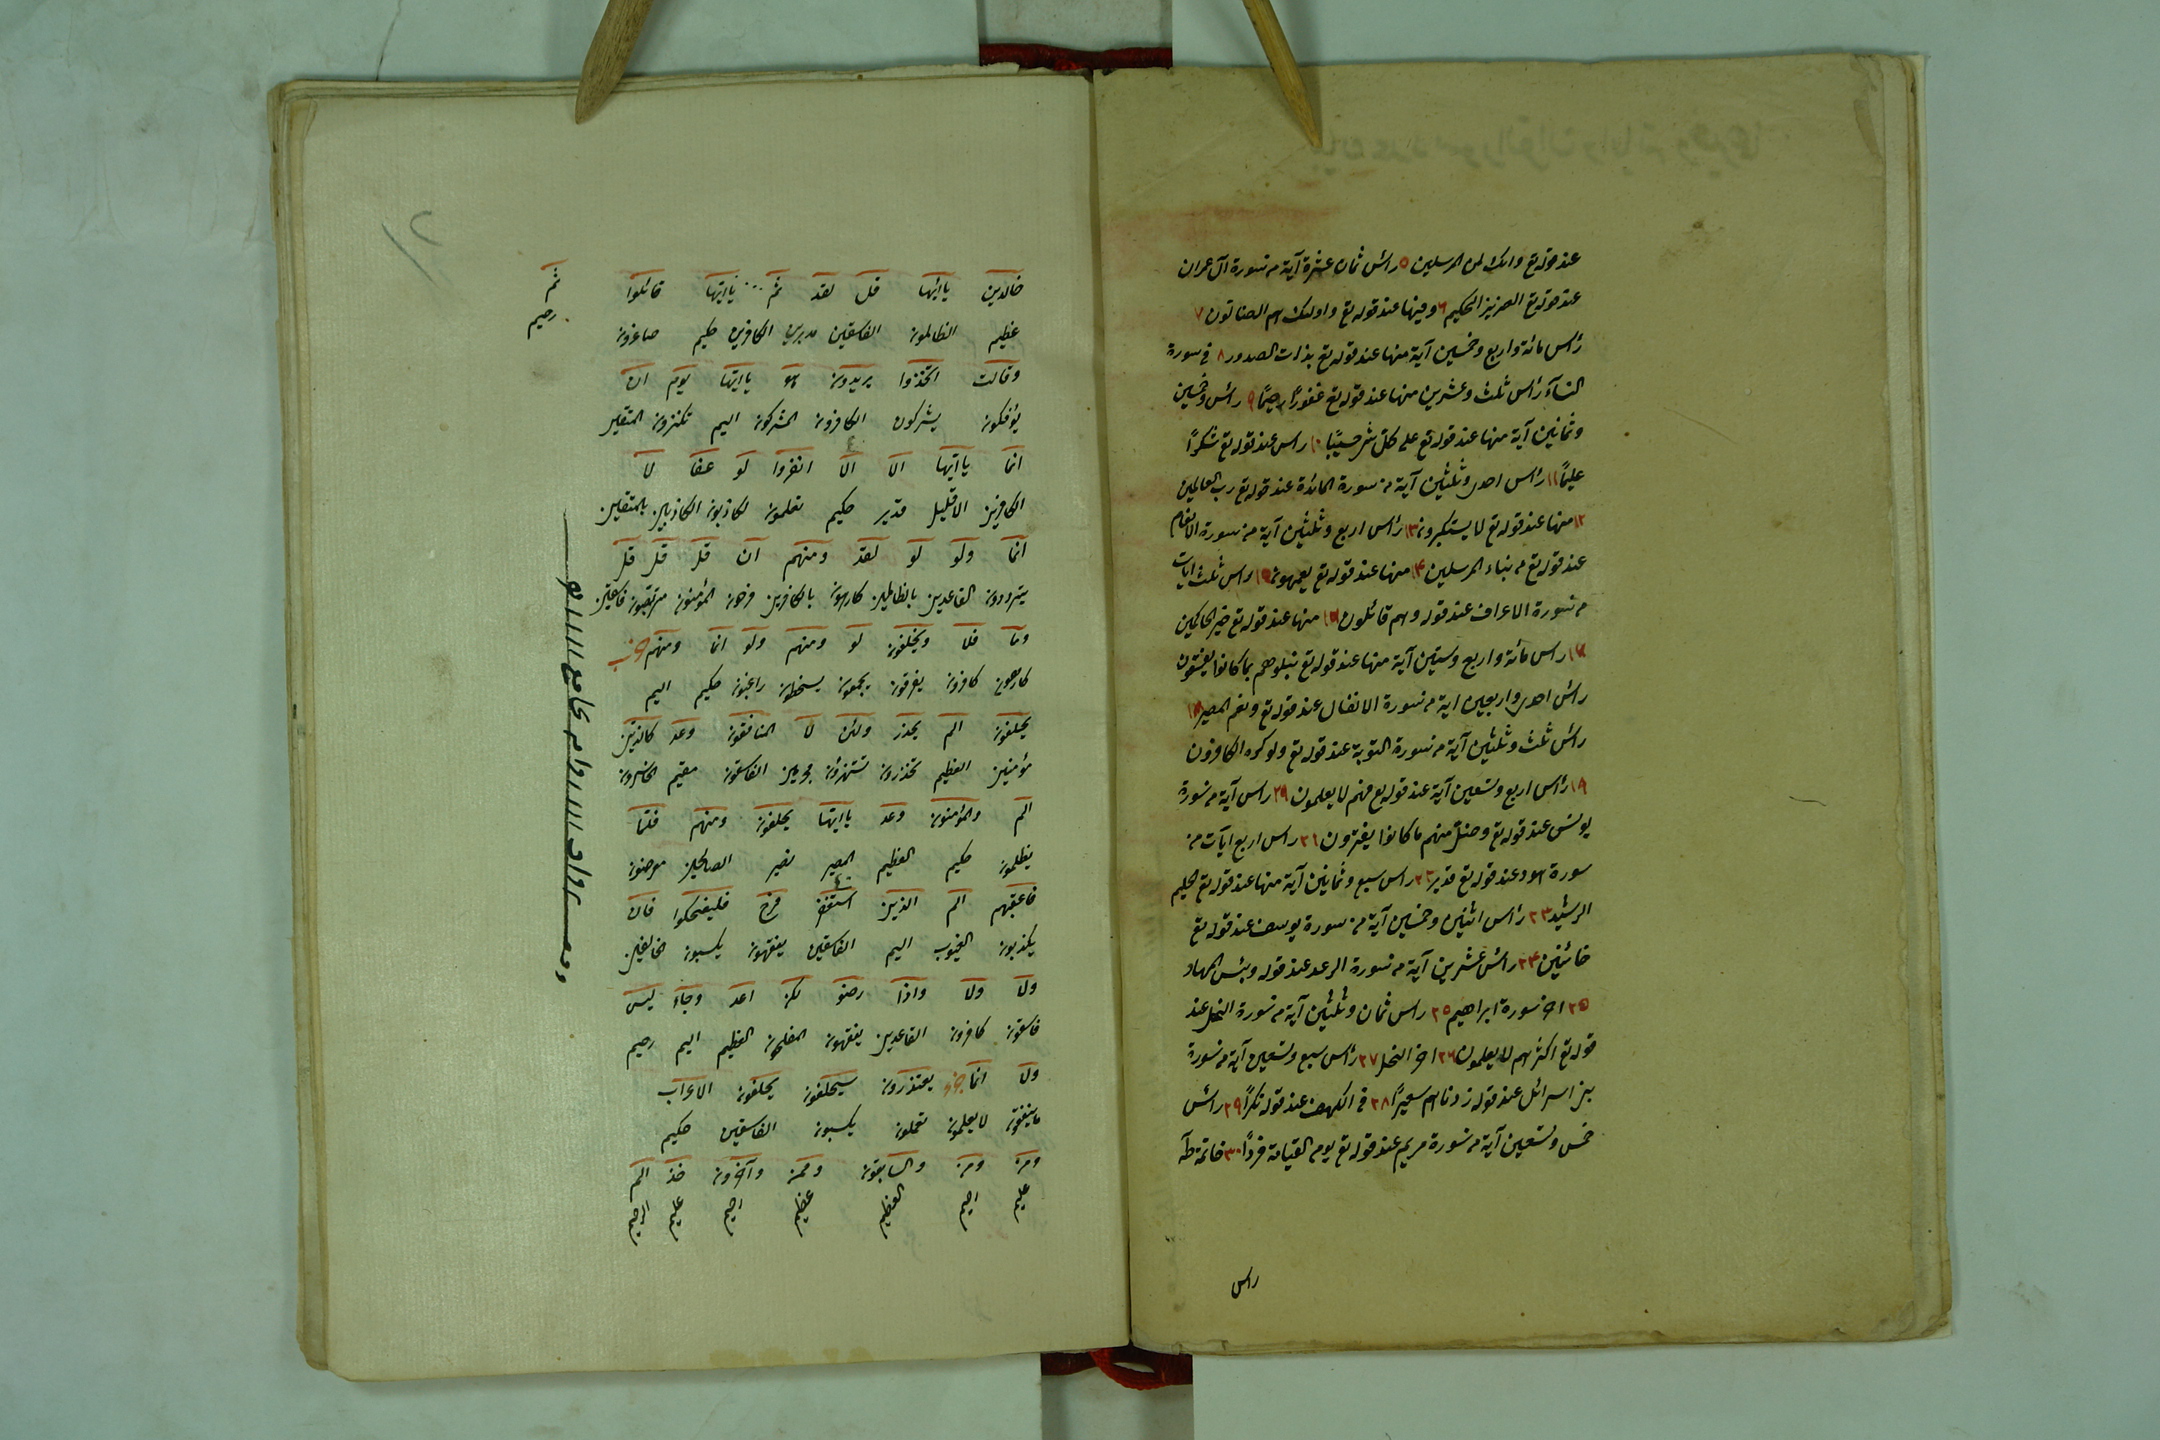 عند قوله تع وانك لمن المرسلين ٥ رأس ثمان عشرة آية من سورة آل عمران
عند قوله تع العزيز الحكيم ٦ وفيها عند قوله تع واولئك هم الضالون ٧
رأس مائة واربع وخمسين آية منها عند قوله تع بذات الصدور ٨ في سورة
النساء رأس ثلث وعشرين منها عند قوله تع غفورًا رحيمًا ٩ رأس وخمسين
وثمانين آية منها عند قوله تع على كل شئ حسيبًا ١٠ رأس عند قوله تع شكرًا
عليمًا ١١ رأس احدى وثلثين آية من سورة المائدة عند قوله تع رب العالمين
١٢ منها عند قوله تع لا يستكبرون ١٣ رأس اربع وثلثين آية من سورة الانعام
عند قوله تع من نباء المرسلين ١٤ منها عند قوله تع يعمهون ١٥ رأس ثلث ايات
من سورة الاعراف عند قوله وهم قائلون ١٦ منها عند قوله تع خير الحاكمين
١٧ رأس مائة واربع وستين آية منها عند قوله تع نبلوهم بما كانوا يفسقون
رأس احدى واربعين اية من سورة الانفال عند قوله تع ونعم المصير ١٨
رأس ثلث وثلثين آية من سورة التوبة عند قوله تع ولو كره الكافرون
١٩ رأس اربع وتسعين آية عند قوله تع فهم لا يعلمون ٢٩ رأس آية من سورة
يونس عند قوله تع وضل منهم ما كانوا يفترون ٢١ رأس اربع ايات من
سورة هود عند قوله تع قدير ٢٢ رأس سبع وثمانين آية منها عند قوله تع الحليم
الرشيد ٢٣ رأس اثنين وخمسين آية من سورة يوسف عند قوله تع
خائنين ٢٤ رأس عشرين آية من سورة الرعد عند قوله وبئس المهاد
٢٥ اخر سورة ابراهيم ٢٥ رأس ثمان وثلثين آية من سورة النحل عند
قوله تع اكثرهم لا يعلمون ٢٦ اخر النحل ٢٧ رأس سبع وتسعين آية من سورة
بني اسرائل عند قوله زدناهم سعيرًا ٢٨ في الكهف عند قوله نكرًا ٢٩ رأس
خمس وتسعين آية من سورة مريم عند قوله تع يوم القيامة فردًا ٣٠ خاتمة طه
رأس
خالدين ياايها قل لقد ثم ياايها قاتلوا
عظيم الظالمون الفاسقين مدبرين الكافرين حكيم صاغرون
ثم
رحيم
وقالت اتخذوا يريدون هو ياايها يوم ان
يؤفكون يشركون الكافرون المشركون اليم تكنزون المتقين
انما ياايها الا الا انفروا لو عفا لا
الكافرين الا قليل قدير حكيم تعلمون لكاذبون الكاذبين بالمتقين
انما ولو لو لقد ومنهم ان قل قل قل
يترددون القاعدين بالظالمين كارهون بالكافرين فرحون المؤمنون متربصون فاسقين
وما فلا ويحلفون لو ومنهم ولو انما ومنهم حزب
كارهون كافرون يفرقون يجمحون يسخطون راغبون حكيم اليم
يحلفون الم يحذر ولئن لا المنافقون وعد كالذين
مؤمنين العظيم تحذرون تستهزؤن مجرمين الفاسقون مقيم الخاسرون
الم والمؤمنون وعد ياايها يحلفون ومنهم فلما
يظلمون حكيم العظيم المصير نصير الصالحين معرضون
فاعقبهم الم الذين استغفر فرح فليضحكوا فان
يكذبون الغيوب اليم الفاسقين يفقهون يكسبون الخالفين
ولا ولا واذا رضو لكن اعد وجاء ليس
فاسقون كافرون القاعدين يفقهون المفلحون العظيم اليم رحيم
ولا انما جزء يعتذرون سيحلفون يحلفون الاعراب
ما ينفقون لا يعلمون تعملون يكسبون الفاسقين حكيم
ومن ومن والسابقون وممن وآخرون خذ الم
عليم رحيم العظيم عظيم رحيم عليم الرحيم